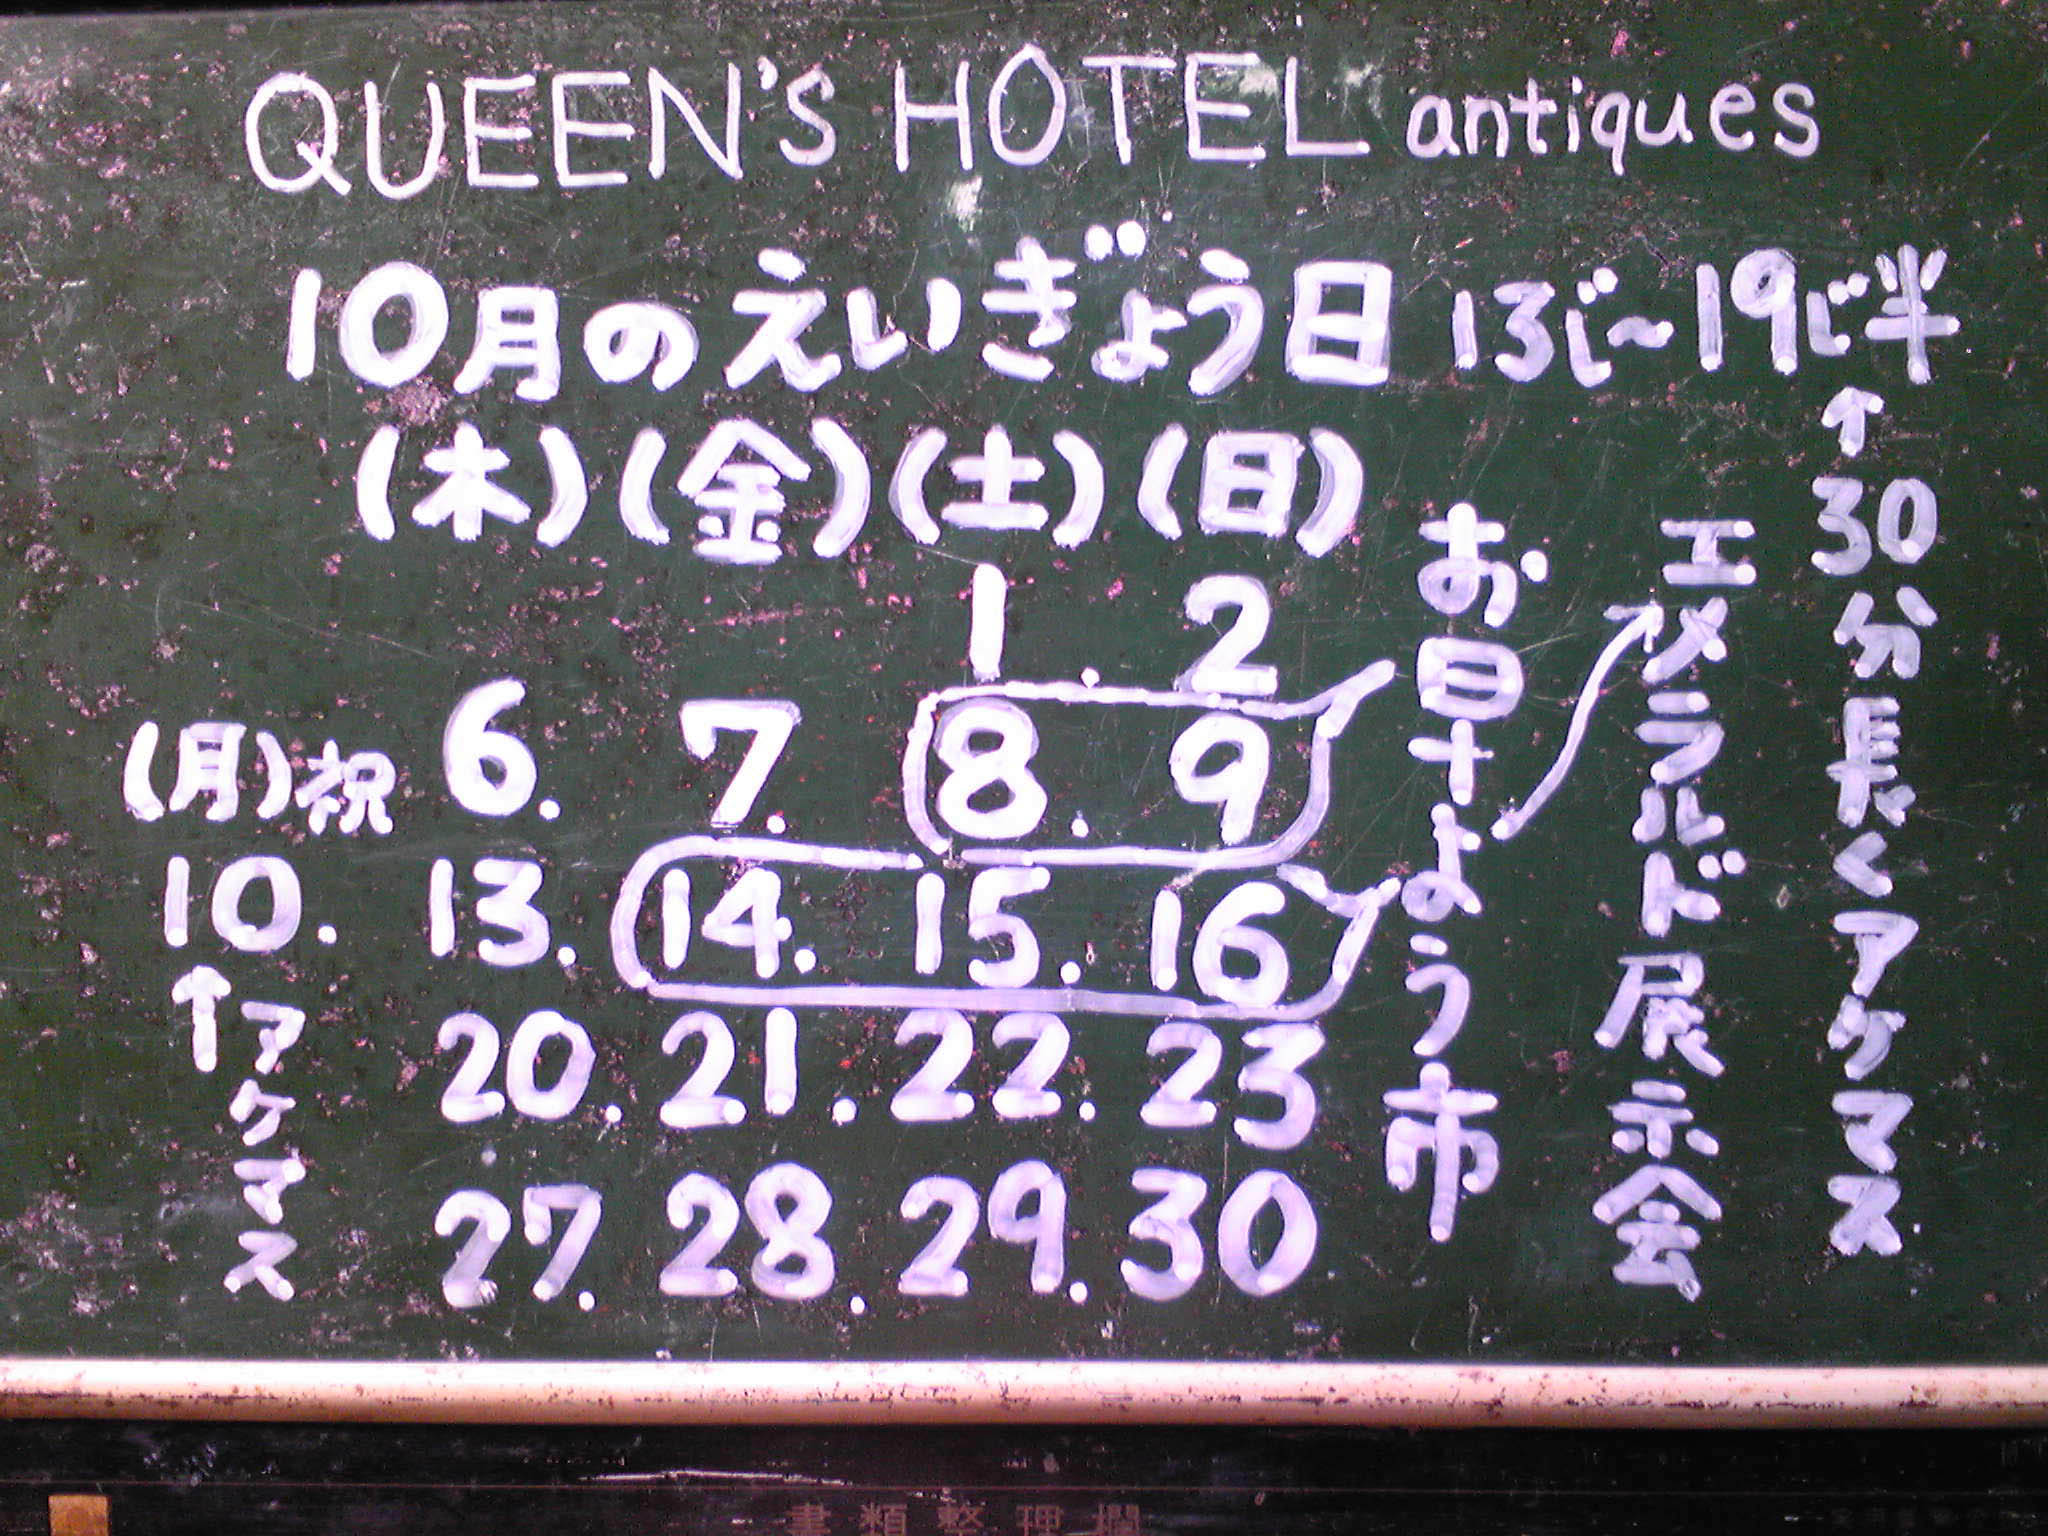 QUEEN'S HOTEL antiques
10月のえいぎょう日 13じ〜19じ半
(木)(金)(土)(日)
1. 2
(月)祝 6. 7. 8. 9
10. 13. 14. 15. 16
20. 21. 22. 23
27. 28. 29. 30
↑アケマス
お日十よう市
エメラルド展示会
↑30分長くアケマス
書類整理欄